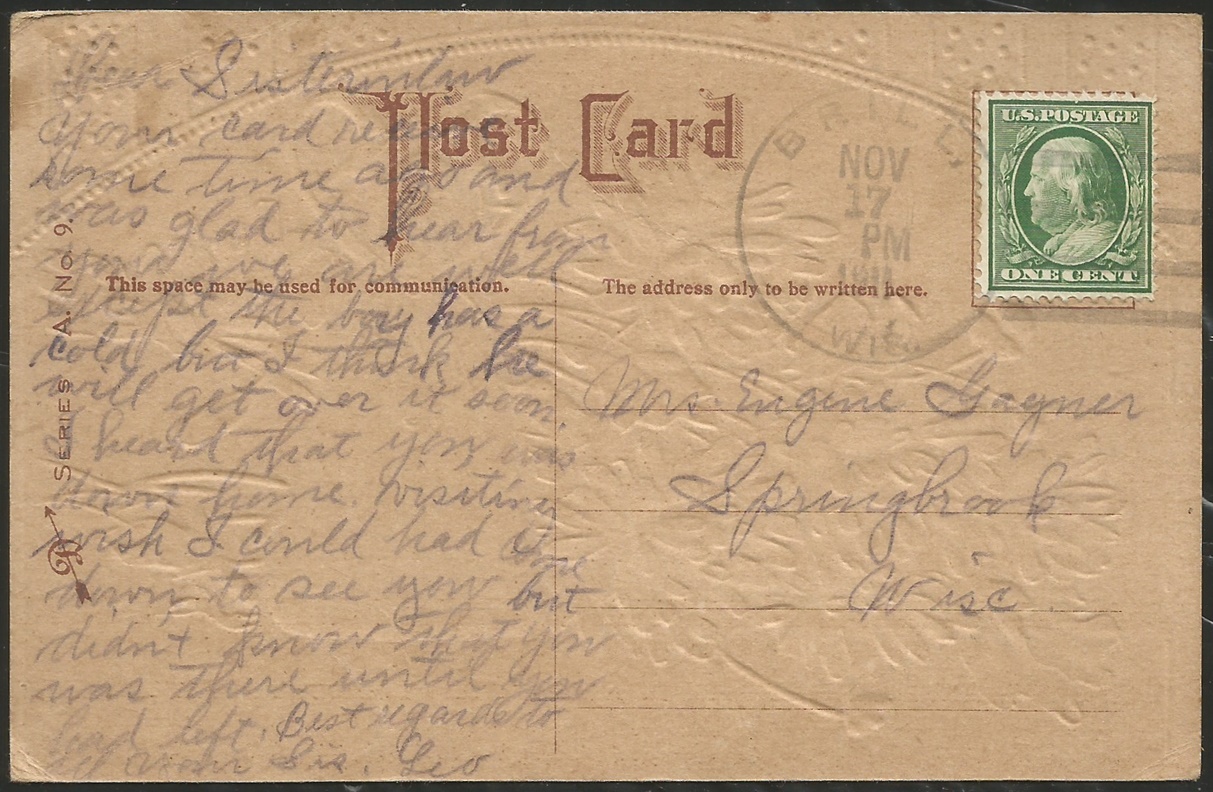 Dear Sisterinlaw
your card
some time ago and
was glad to hear from
you we are well
except the boy has a
cold but I think he
will get over it soon
I heard that you was
down home visiting
wish I could had come
down to see you but
didn't know that you
was there until you
had left. Best regards to
your Sis. Leo
Post Card
This space may be used for communication.
The address only to be written here.
SERIES A. No. 9.
NOV
17
PM
Wis.
U.S. POSTAGE
ONE CENT
Mrs. Eugene Gagner
Springbrook
Wisc.